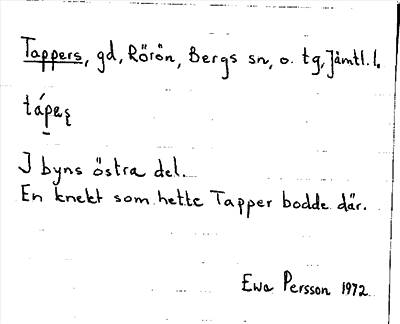 Tappers, gd, Rörön, Bergs sn, o. tg, Jämtl. l.
I byns östra del.
En knekt som hette Tapper bodde där.
Ewa Persson 1972.